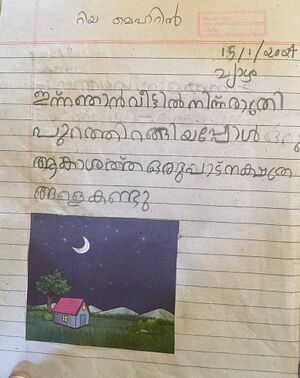 റിയ മെഹറിൻ
DATE
15/1/2024
വ്യാഴം
ഇന്ന് ഞാൻ വീട്ടിൽ നിന്ന് രാത്രി
പുറത്തിറങ്ങിയപ്പോൾ ഒരു
ആകാശത്ത് ഒരുപാട് നക്ഷത്ര
ങ്ങളെ കണ്ടു